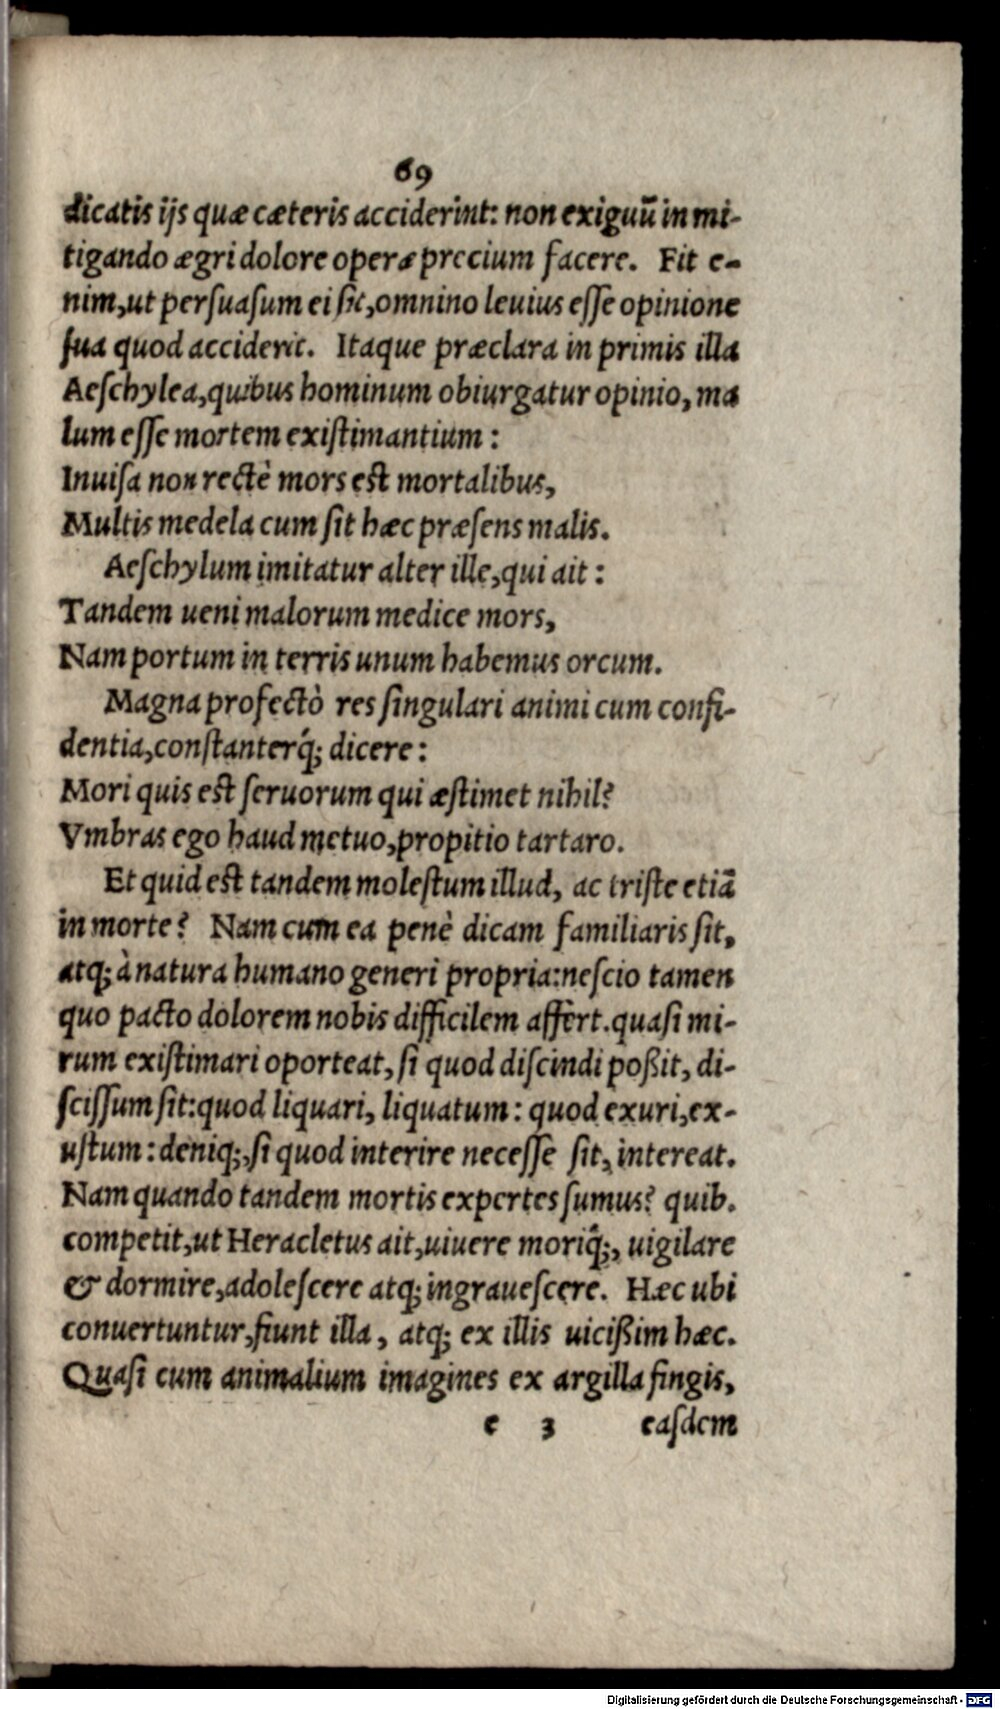 69
dicatis ijs quæ cæteris acciderint: non exiguũ in mi-
tigando ægri dolore operæ precium facere. Fit e-
nim, ut persuasum ei sit, omnino leuius esse opinione
sua quod acciderit. Itaque præclara in primis illa
Aeschylea, quibus hominum obiurgatur opinio, ma
lum esse mortem existimantium:
Inuisa non rectè mors est mortalibus,
Multis medela cum sit hæc præsens malis.
Aeschylum imitatur alter ille, qui ait:
Tandem ueni malorum medice mors,
Nam portum in terris unum habemus orcum.
Magna profectò res singulari animi cum confi-
dentia, constanterq́; dicere:
Mori quis est seruorum qui æstimet nihil?
Vmbras ego haud metuo, propitio tartaro.
Et quid est tandem molestum illud, ac triste etiã
in morte? Nam cum ea penè dicam familiaris sit,
atq; à natura humano generi propria: nescio tamen
quo pacto dolorem nobis difficilem affert. quasi mi-
rum existimari oporteat, si quod discindi poßit, di-
scissum sit: quod liquari, liquatum: quod exuri, ex-
ustum: deniq;, si quod interire necesse sit, intereat.
Nam quando tandem mortis expertes sumus? quib.
competit, ut Heracletus ait, uiuere moriq́;, uigilare
& dormire, adolescere atq; ingrauescere. Hæc ubi
conuertuntur, fiunt illa, atq; ex illis uicißim hæc.
Quasi cum animalium imagines ex argilla fingis,
e 3 easdem
Digitalisierung gefördert durch die Deutsche Forschungsgemeinschaft - DFG